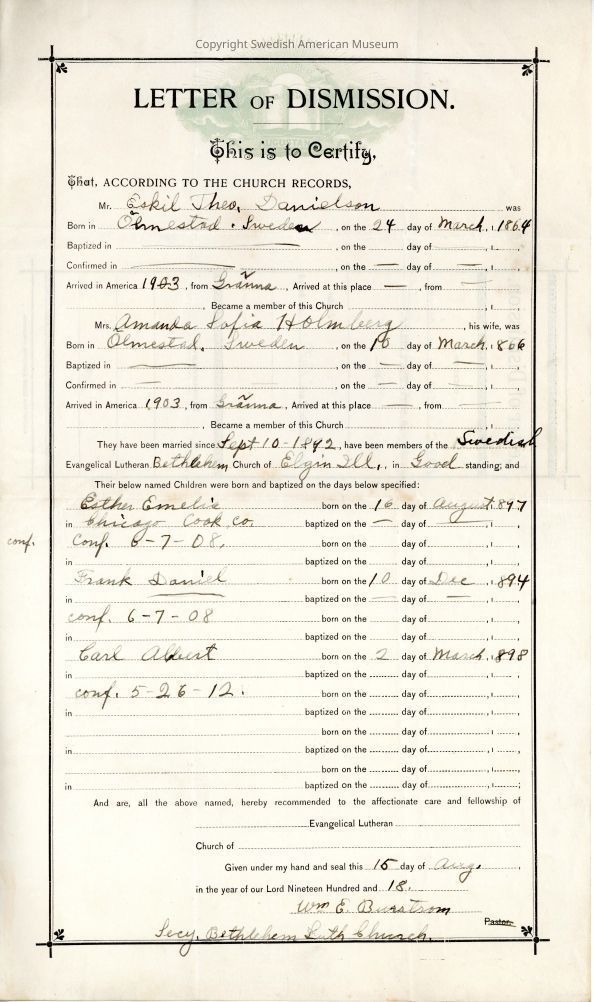 Copyright Swedish American Museum
LETTER OF DISMISSION.
This is to Certify,
That, ACCORDING TO THE CHURCH RECORDS,
Mr. Eskil Theo. Danielson was
Born in Ölmestad. Sweden, on the 24 day of March, 1864
Baptized in —, on the day of , 1 ,
Confirmed in —, on the — day of —, 1 ,
Arrived in America 1903, from Gränna, Arrived at this place —, from — ,
, Became a member of this Church
Mrs. Amanda Sofia Holmberg, his wife, was
Born in Ölmestad, Sweden, on the 10 day of March, 1866
Baptized in —, on the — day of —, 1 ,
Confirmed in —, on the — day of —, 1 ,
Arrived in America 1903, from Gränna, Arrived at this place —, from — ,
, Became a member of this Church
They have been married since Sept 10-1892, have been members of the Swedish
Evangelical Lutheran Bethlehem Church of Elgin Ill., in Good standing; and
Their below named Children were born and baptized on the days below specified:
Esther Emelie born on the 16 day of August, 1897
in Chicago Cook Co. baptized on the — day of —, 1 ,
conf. Conf. 6-7-08. born on the day of , 1 ,
in baptized on the day of , 1 ,
Frank Daniel born on the 10 day of Dec, 1894
in — baptized on the — day of —, 1 ,
conf. 6-7-08 born on the day of , 1 ,
in baptized on the day of , 1 ,
Carl Albert born on the 2 day of March, 1898
in baptized on the day of , 1 ,
conf. 5-26-12. born on the day of , 1 ,
in baptized on the day of , 1 ,
born on the day of , 1 ,
in baptized on the day of , 1 ,
born on the day of , 1 ,
in baptized on the day of , 1 ;
And are, all the above named, hereby recommended to the affectionate care and fellowship of
Evangelical Lutheran
Church of
Given under my hand and seal this 15 day of Aug.,
in the year of our Lord Nineteen Hundred and 18.
Wm E. Burstrom
Pastor.
Secy. Bethlehem Luth Church.